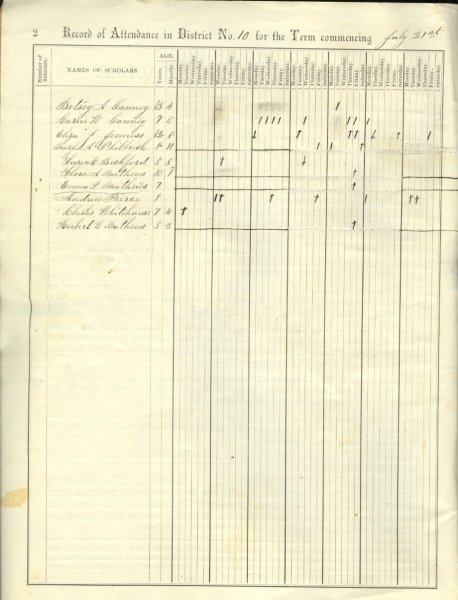 2 Record of Attendance in District No. 10 for the Term commencing July 21st
Number of Scholars.
NAMES OF SCHOLARS.
AGE.
Years. Months.
Monday. Tuesday. Wednesday. Thursday. Friday. Saturday. Monday. Tuesday. Wednesday. Thursday. Friday. Saturday. Monday. Tuesday. Wednesday. Thursday. Friday. Saturday. Monday. Tuesday. Wednesday. Thursday. Friday. Saturday. Monday. Tuesday. Wednesday. Thursday. Friday. Saturday. Monday. Tuesday. Wednesday. Thursday. Friday. Saturday. Monday. Tuesday. Wednesday. Thursday. Friday. Saturday.
Betsey A Canney 13 4
Carrie W Canney 7 10
Eliza J 12 8
A Philbrick 8 11
E Bickford 5 5
Flora A Mathews 10 7
Emma F Mathews 7
Andrew 9
Charles Whitehouse 7 4
Herbert E Mathews 5 3